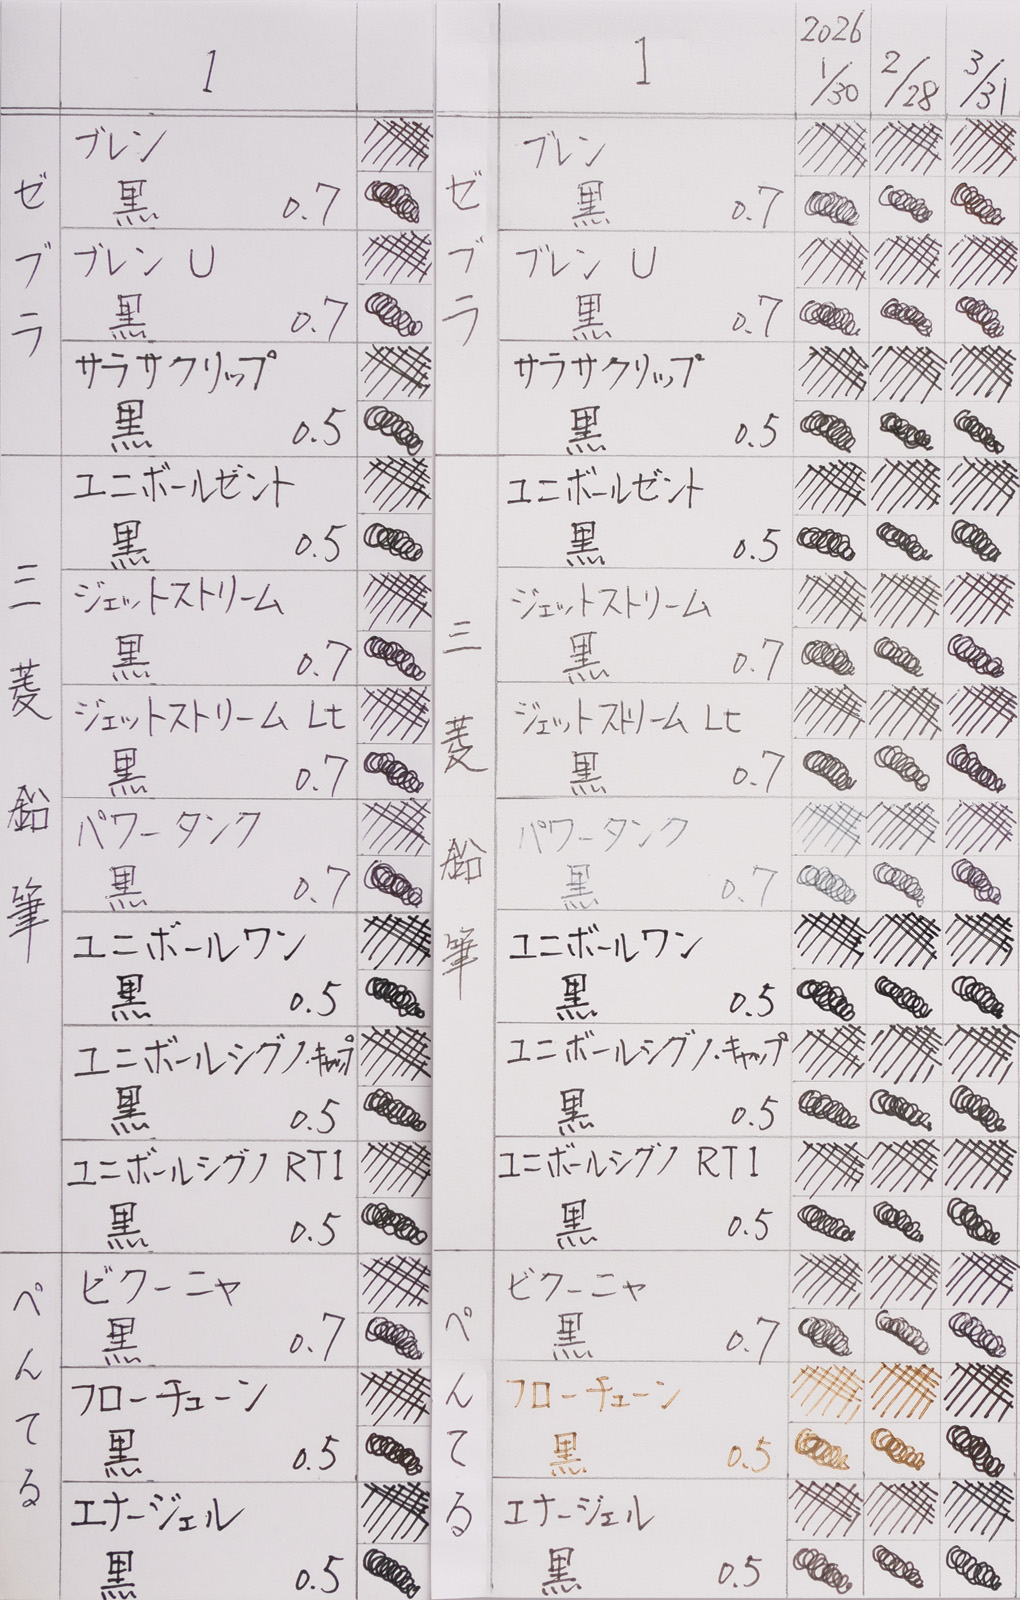 1
ゼブラ
ブレン
黒 0.7
ブレン U
黒 0.7
サラサクリップ
黒 0.5
三菱鉛筆
ユニボールゼント
黒 0.5
ジェットストリーム
黒 0.7
ジェットストリーム Lt
黒 0.7
パワータンク
黒 0.7
ユニボールワン
黒 0.5
ユニボールシグノ・キャップ
黒 0.5
ユニボールシグノ RT1
黒 0.5
ぺんてる
ビクーニャ
黒 0.7
フローチューン
黒 0.5
エナージェル
黒 0.5
1 2026 1/30 2/28 3/31
ゼブラ
ブレン
黒 0.7
ブレン U
黒 0.7
サラサクリップ
黒 0.5
三菱鉛筆
ユニボールゼント
黒 0.5
ジェットストリーム
黒 0.7
ジェットストリーム Lt
黒 0.7
パワータンク
黒 0.7
ユニボールワン
黒 0.5
ユニボールシグノ・キャップ
黒 0.5
ユニボールシグノ RT1
黒 0.5
ぺんてる
ビクーニャ
黒 0.7
フローチューン
黒 0.5
エナージェル
黒 0.5